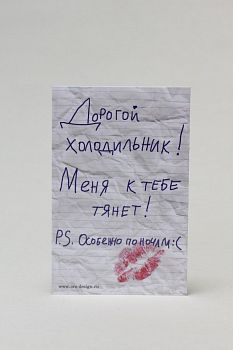 Дорогой
холодильник!
Меня к тебе
тянет!
P.S. Особенно по ночам :(
www.orz-design.ru